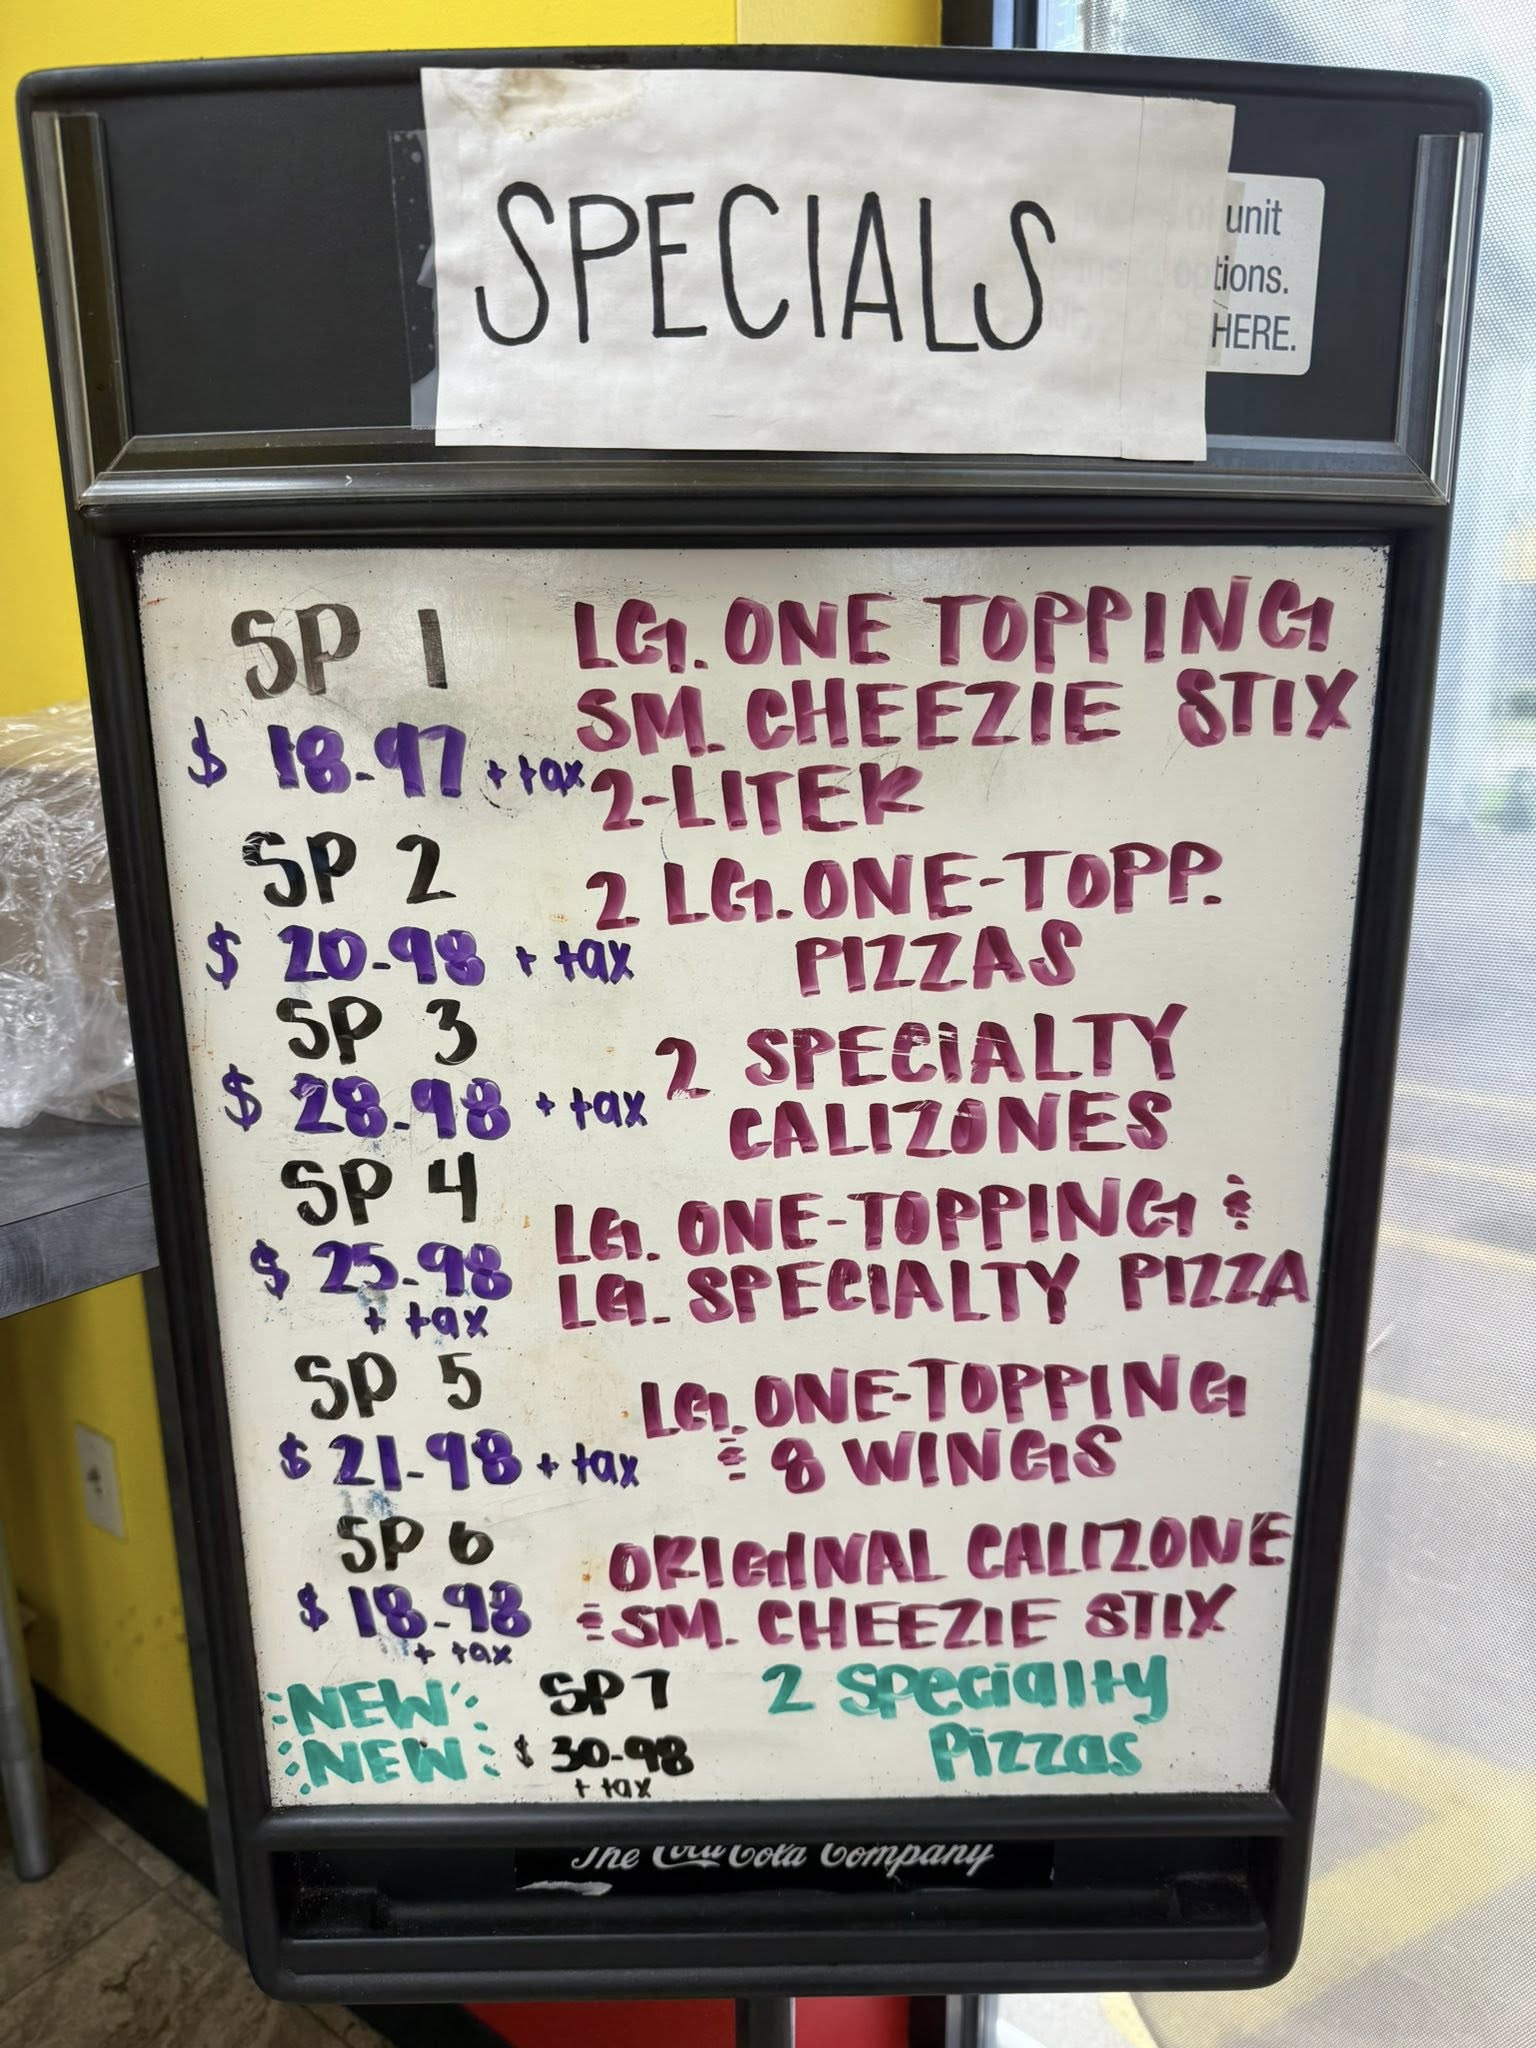 SPECIALS
unit
options.
HERE.
SP 1
LG. ONE TOPPING
SM. CHEEZIE STIX
$ 18.97 + tax
2-LITER
SP 2
2 LG. ONE-TOPP.
PIZZAS
$ 20.98 + tax
SP 3
2 SPECIALTY
CALIZONES
$ 28.98 + tax
SP 4
LG. ONE-TOPPING &
LG. SPECIALTY PIZZA
$ 25.98
+ tax
SP 5
LG. ONE-TOPPING
& 8 WINGS
$ 21.98 + tax
SP 6
ORIGINAL CALIZONE
& SM. CHEEZIE STIX
$ 18.98
+ tax
NEW SP 7 2 Specialty
NEW $ 30.98 Pizzas
+ tax
The Coca-Cola Company